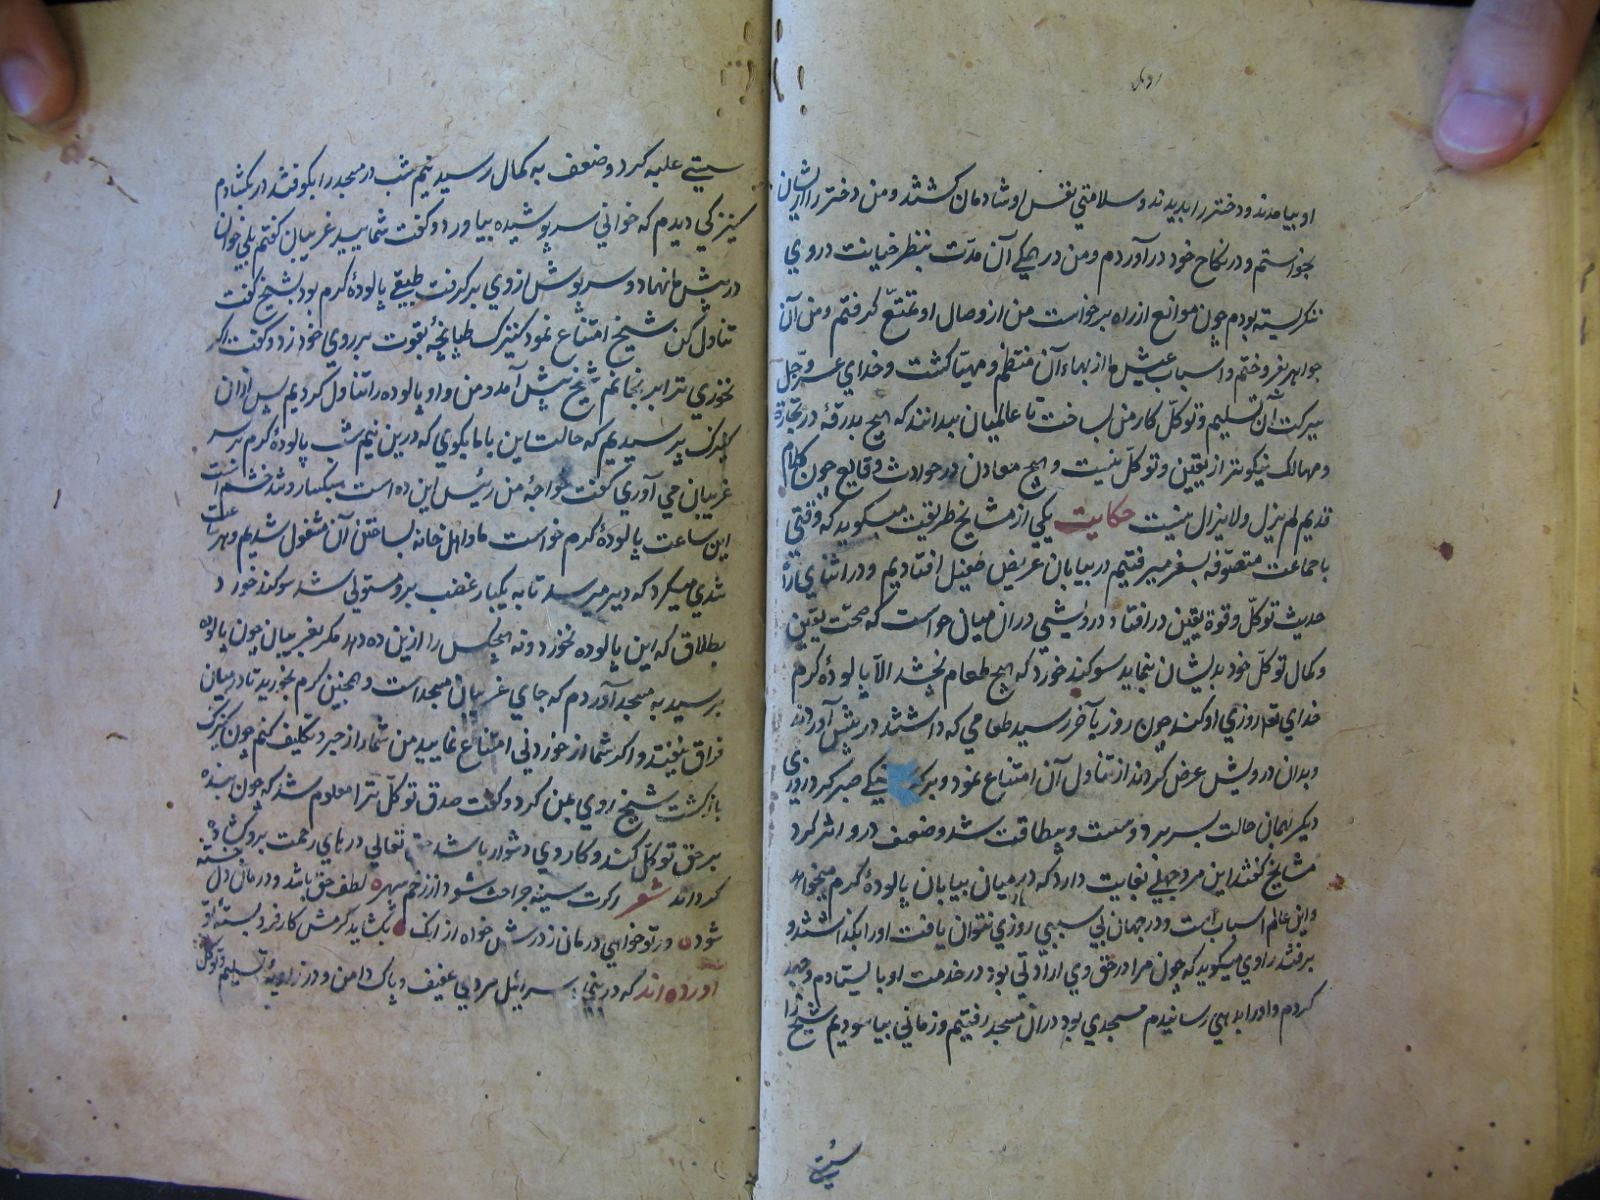 او بیامدند و دختر را بدیدند و سلامتی نفس او شادمان کشتند و من دختر را از ایشان
بخواستم و در نکاح خود درآوردم و من در همکی آن مدّت بنظر خیانت در وی
ننکریسته بودم چون موانع از راه برخواست من از وصال او تمتّع کرفتم و من آن
جواهر بفروختم و اسباب عیش ما از بهاء آن منتظم و مهیّا کشت و خدای عزّ و جل
ببرکت آن تسلیم و توکّل کار من بساخت تا عالمیان بدانند که هیچ بدرقهٔ در تجارة
و مهالک نیکوتر از یقین و توکّل نیست و هیچ معادن در حوادث و قایع چون کلام
قدیم لم یزل و لایزال نیست حکایت یکی از مشایخ طریقت میکوید که وقتی
با جماعت متصوّفه بسفر میرفتیم در بیابان عریض طویل افتادیم و در اثنای راه
حدیث توکّل و قوة یقین در افتاد درویشی در ان میان خواست که صحّت یقین
و کمال توکّل خود بدیشان بنماید سوکند خورد که هیچ طعام نچشد الّا پالودهٔ کرم
خدای تعا روزی او کند چون روز بآخر رسید طعامی که داشتند در پیش آوردند
و بدان درویش عرض کردند از تناول آن امتناع نمود و برکر سنکی صبر کرد روزی
دیکر بهمان حالت بسر برد و سست و بیطاقت شد و ضعف درو اثر کرد
مشایخ کفتند این مرد جهلی بغایت دارد که در میان بیابان پالودهٔ کرم میخواهد
و این عالم اسباب است و در جهان بی سببی روزی نتوان یافت او را بکذاشتند و
برفتند راوی میکوید که چون مرا در حق وی ارادتی بود در خدمت او بایستادم و جهد
کردم و او را بدهی رسانیدم مسجدی بود در ان مسجد رفتیم و زمانی بیاسودیم شیخ را
سستی
سستی غلبه کرد و ضعف به کمال رسید نیم شب در مسجد را بکوفتند در بکشادم
کنیزکی دیدم که خوانی سر پوشیده بیاورد و کفت شمایید غریبان کفتم بلی خوان
در پیش ما نهاد و سرپوش از وی برکرفت طبقی پالودهٔ کرم بود بشیخ کفت
تناول کن شیخ امتناع نمود کنیزک طپانچهٔ بقوت بر روی خود زد و کفت اکر
نخوری ترا برنجانم شیخ پیش آمد و من و او پالوده را تناول کردیم پس از ان
کنیزک پرسیدیم که حالت این با ما بکوی که درین نیم شب پالودهٔ کرم بر سر
غریبان می آوری کفت خواجهٔ من رئیس این ده است و تند خشم است
این ساعت پالودهٔ کرم خواست ما و اهل خانه بساختن آن مشغول شدیم و هر ساعت
تندی میکرد که دیر میرسد تا به یکبار غضب برو مستولی شد سوکند خورد
بطلاق که این پالوده نخورد و نه هیچکس را ازین ده دهد مکر بغریبان چون پالوده
برسید به مسجد آوردم که جای غریبان مسجد است و همچنین کرم بخورید تا در میان
فراق نیفتد و اکر شما از خوردنی امتناع نمایید من شما را از جبر و تکلیف کنم چون کنیزک
بازکشت شیخ روی بمن کرد و کفت صدق توکّل ترا معلوم شد که چون بنده
بر حق توکّل کند و کار وی دشوار باشد حق تعالی درهای رحمت برو کشاده
کرداند شعر اکرت سینه جراحت شود از زخم سپهر لطف حق باشد و درمان دل خسته
شود ور تو خواهی درمان ز درش خواه از انک بکشاید کرمش کار فرو بستهٔ تو
آورده‌اند که در بنی اسرائیل مردی عفیف و پاک دامن و در زاویهٔ تسلیم و توکّل